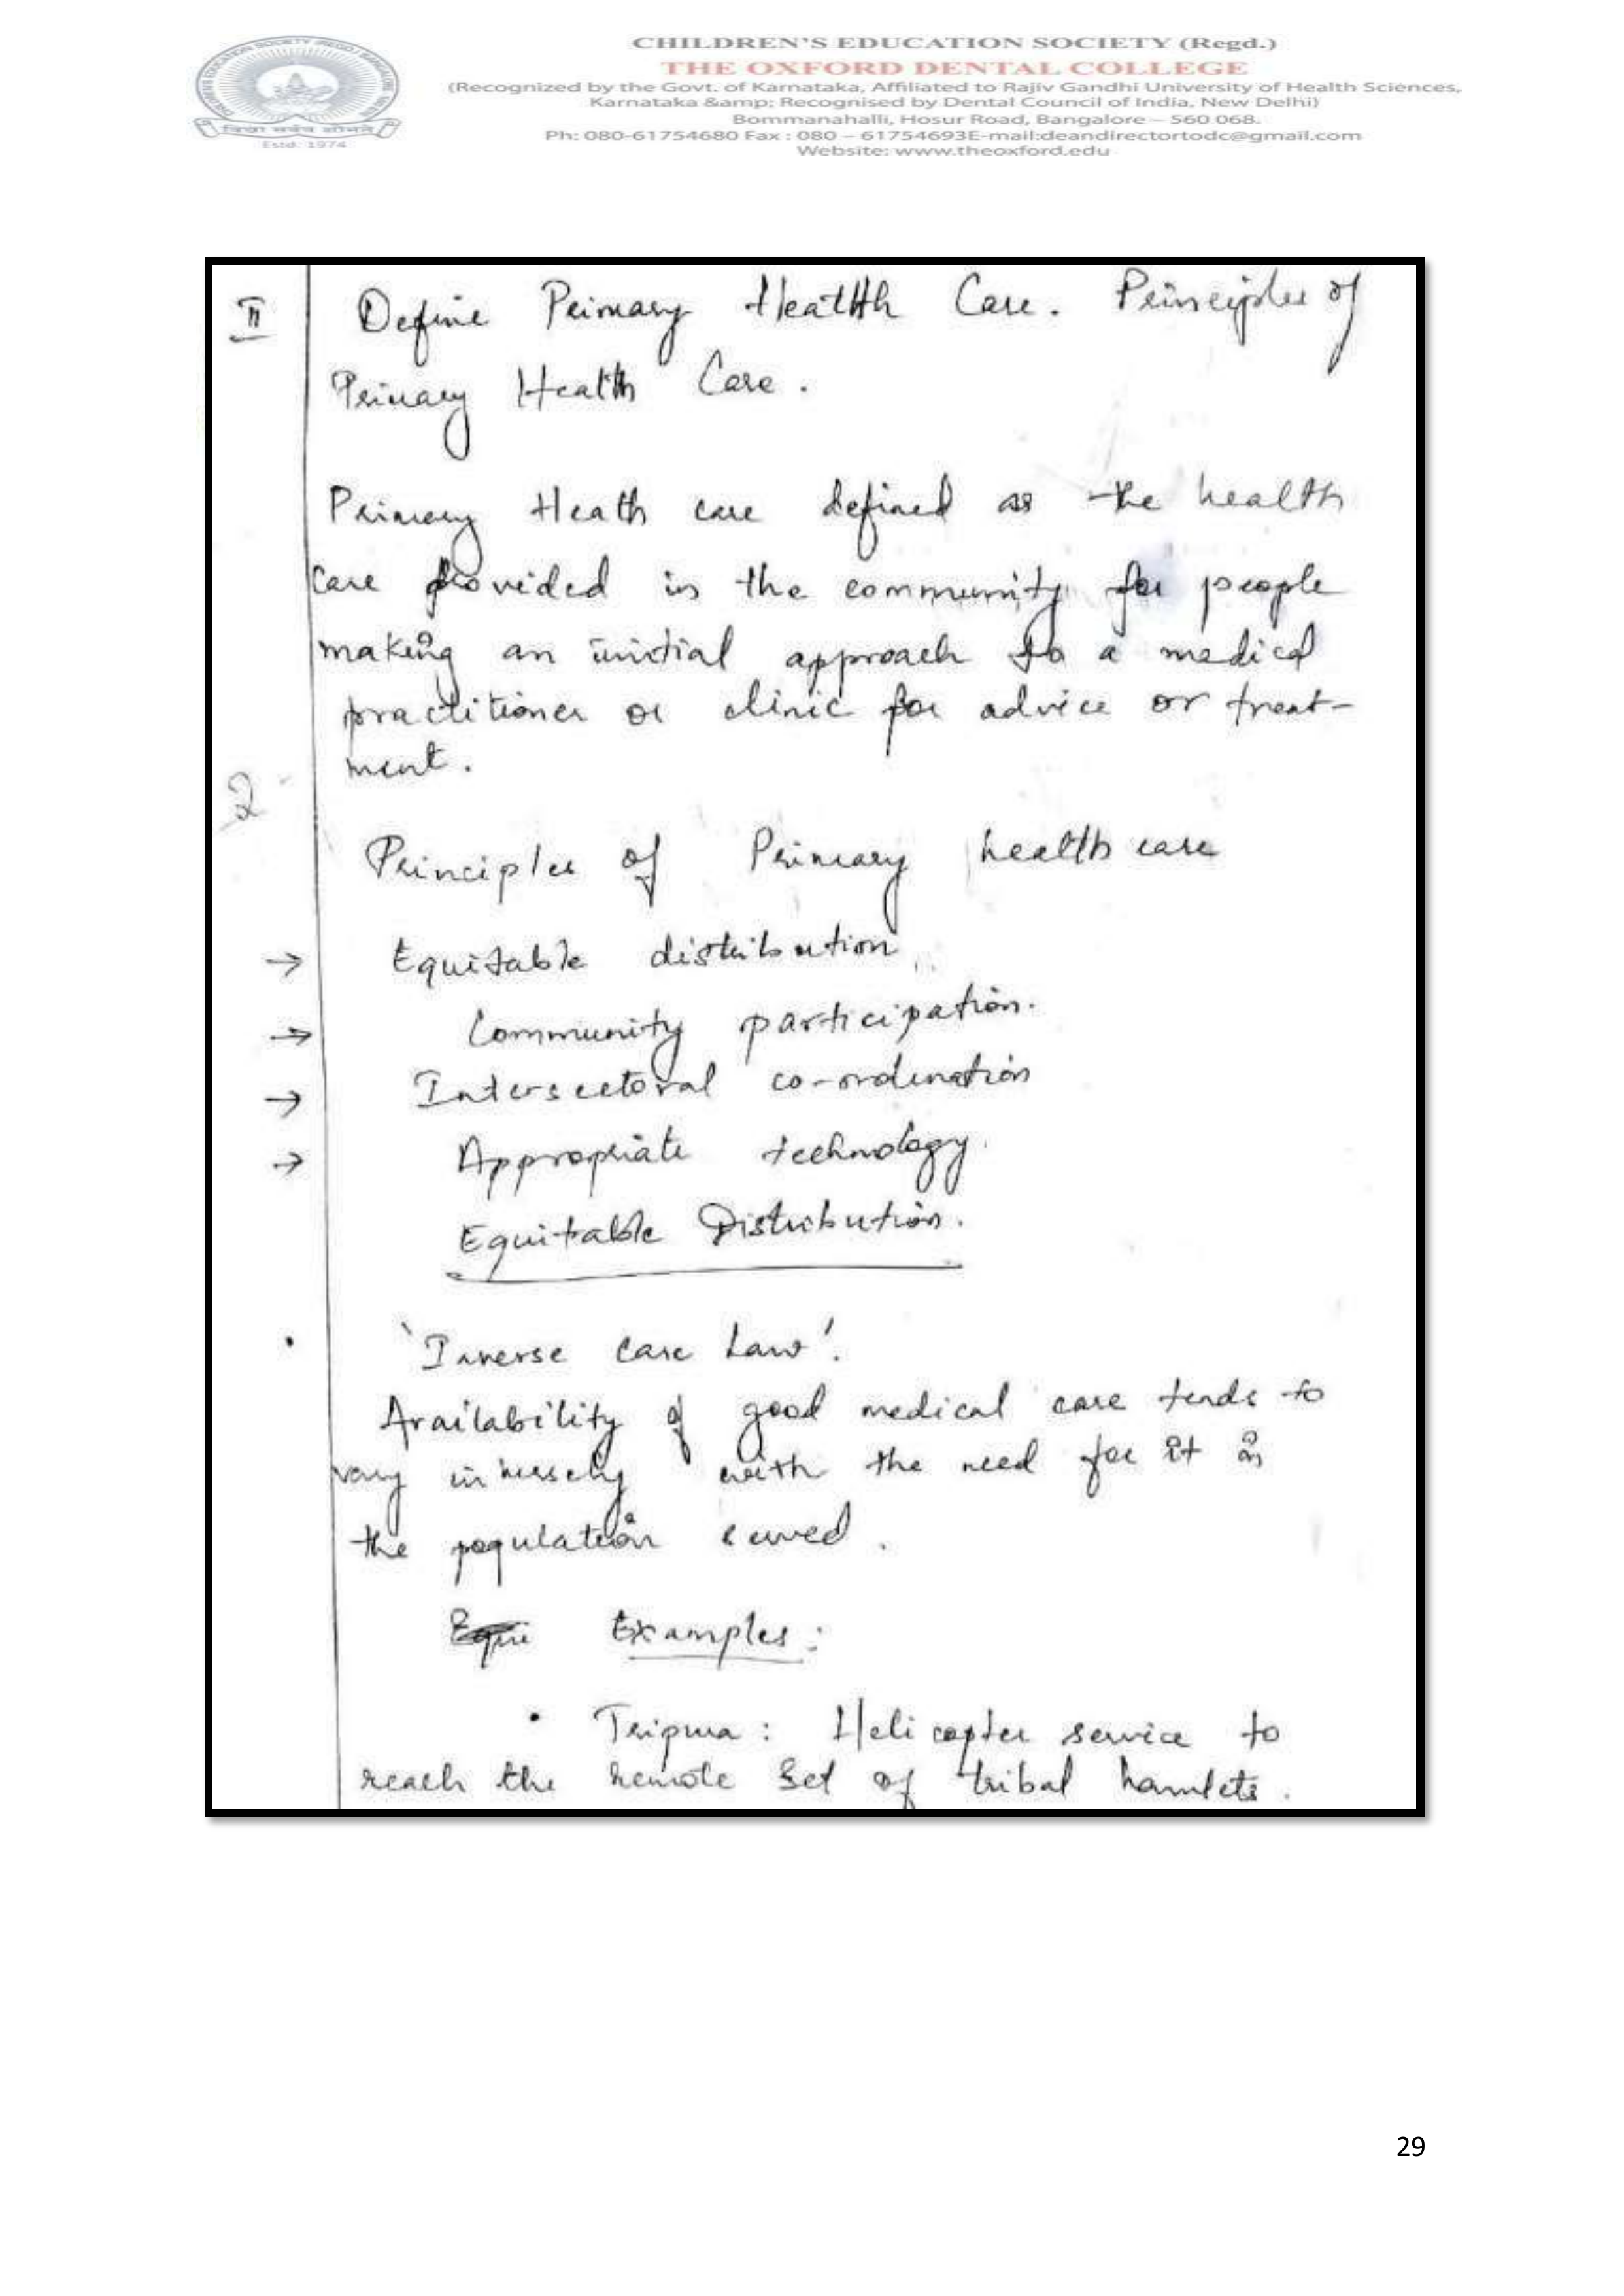 CHILDREN'S EDUCATION SOCIETY (Regd.)
THE OXFORD DENTAL COLLEGE
(Recognized by the Govt. of Karnataka, Affiliated to Rajiv Gandhi University of Health Sciences,
Karnataka &amp; Recognised by Dental Council of India, New Delhi)
Bommanahalli, Hosur Road, Bangalore – 560 068.
Ph: 080-61754680 Fax : 080 – 61754693E-mail:deandirectortodc@gmail.com
Website: www.theoxford.edu
Estd. 1974
II Define Primary Health Care. Principles of
Primary Health Care.
Primary Heath care defined as the health
care provided in the community for people
making an initial approach to a medical
practitioner or clinic for advice or treat-
ment.
2
Principles of Primary health care
→ Equitable distribution
→ Community participation.
→ Intersectoral co-ordination
→ Appropriate technology.
Equitable Distribution.
• 'Inverse Care Law'.
Availability of good medical care tends to
vary inversely with the need for it in
the population served.
Equi Examples:
• Tripura: Helicopter service to
reach the remote set of tribal hamlets.
29